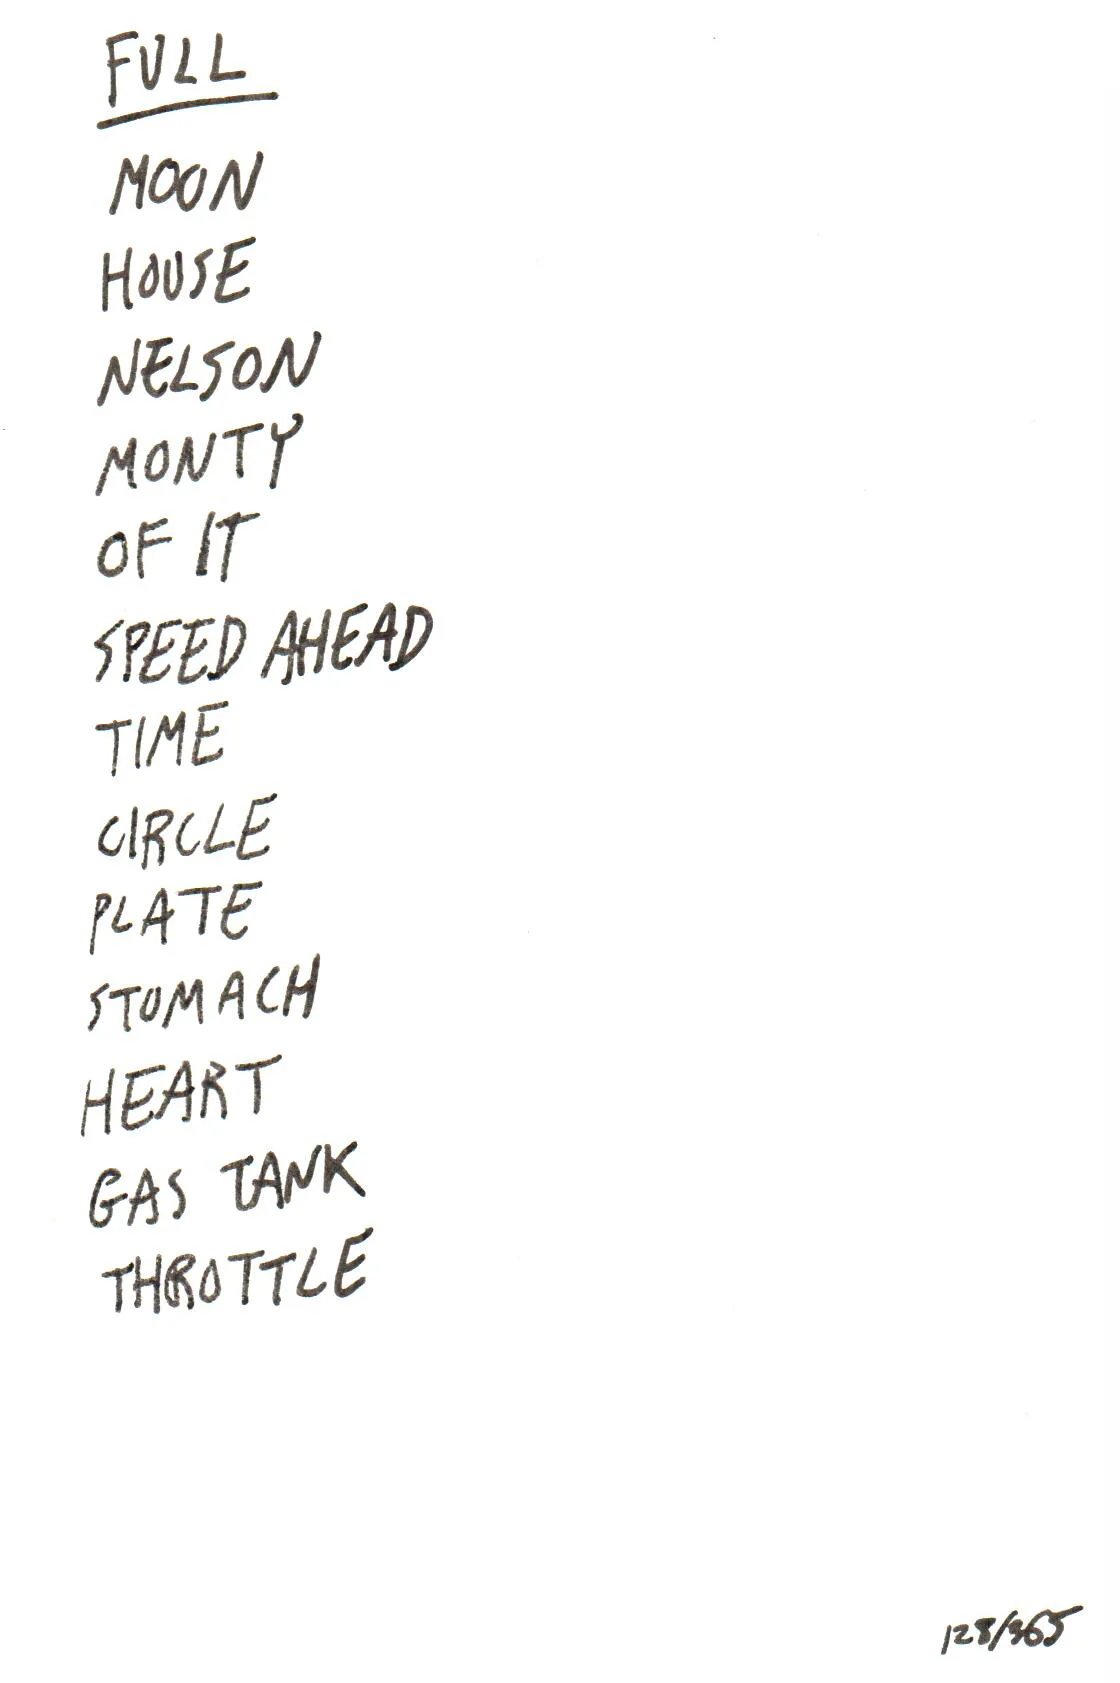 FULL
MOON
HOUSE
NELSON
MONTY
OF IT
SPEED AHEAD
TIME
CIRCLE
PLATE
STOMACH
HEART
GAS TANK
THROTTLE
128/365